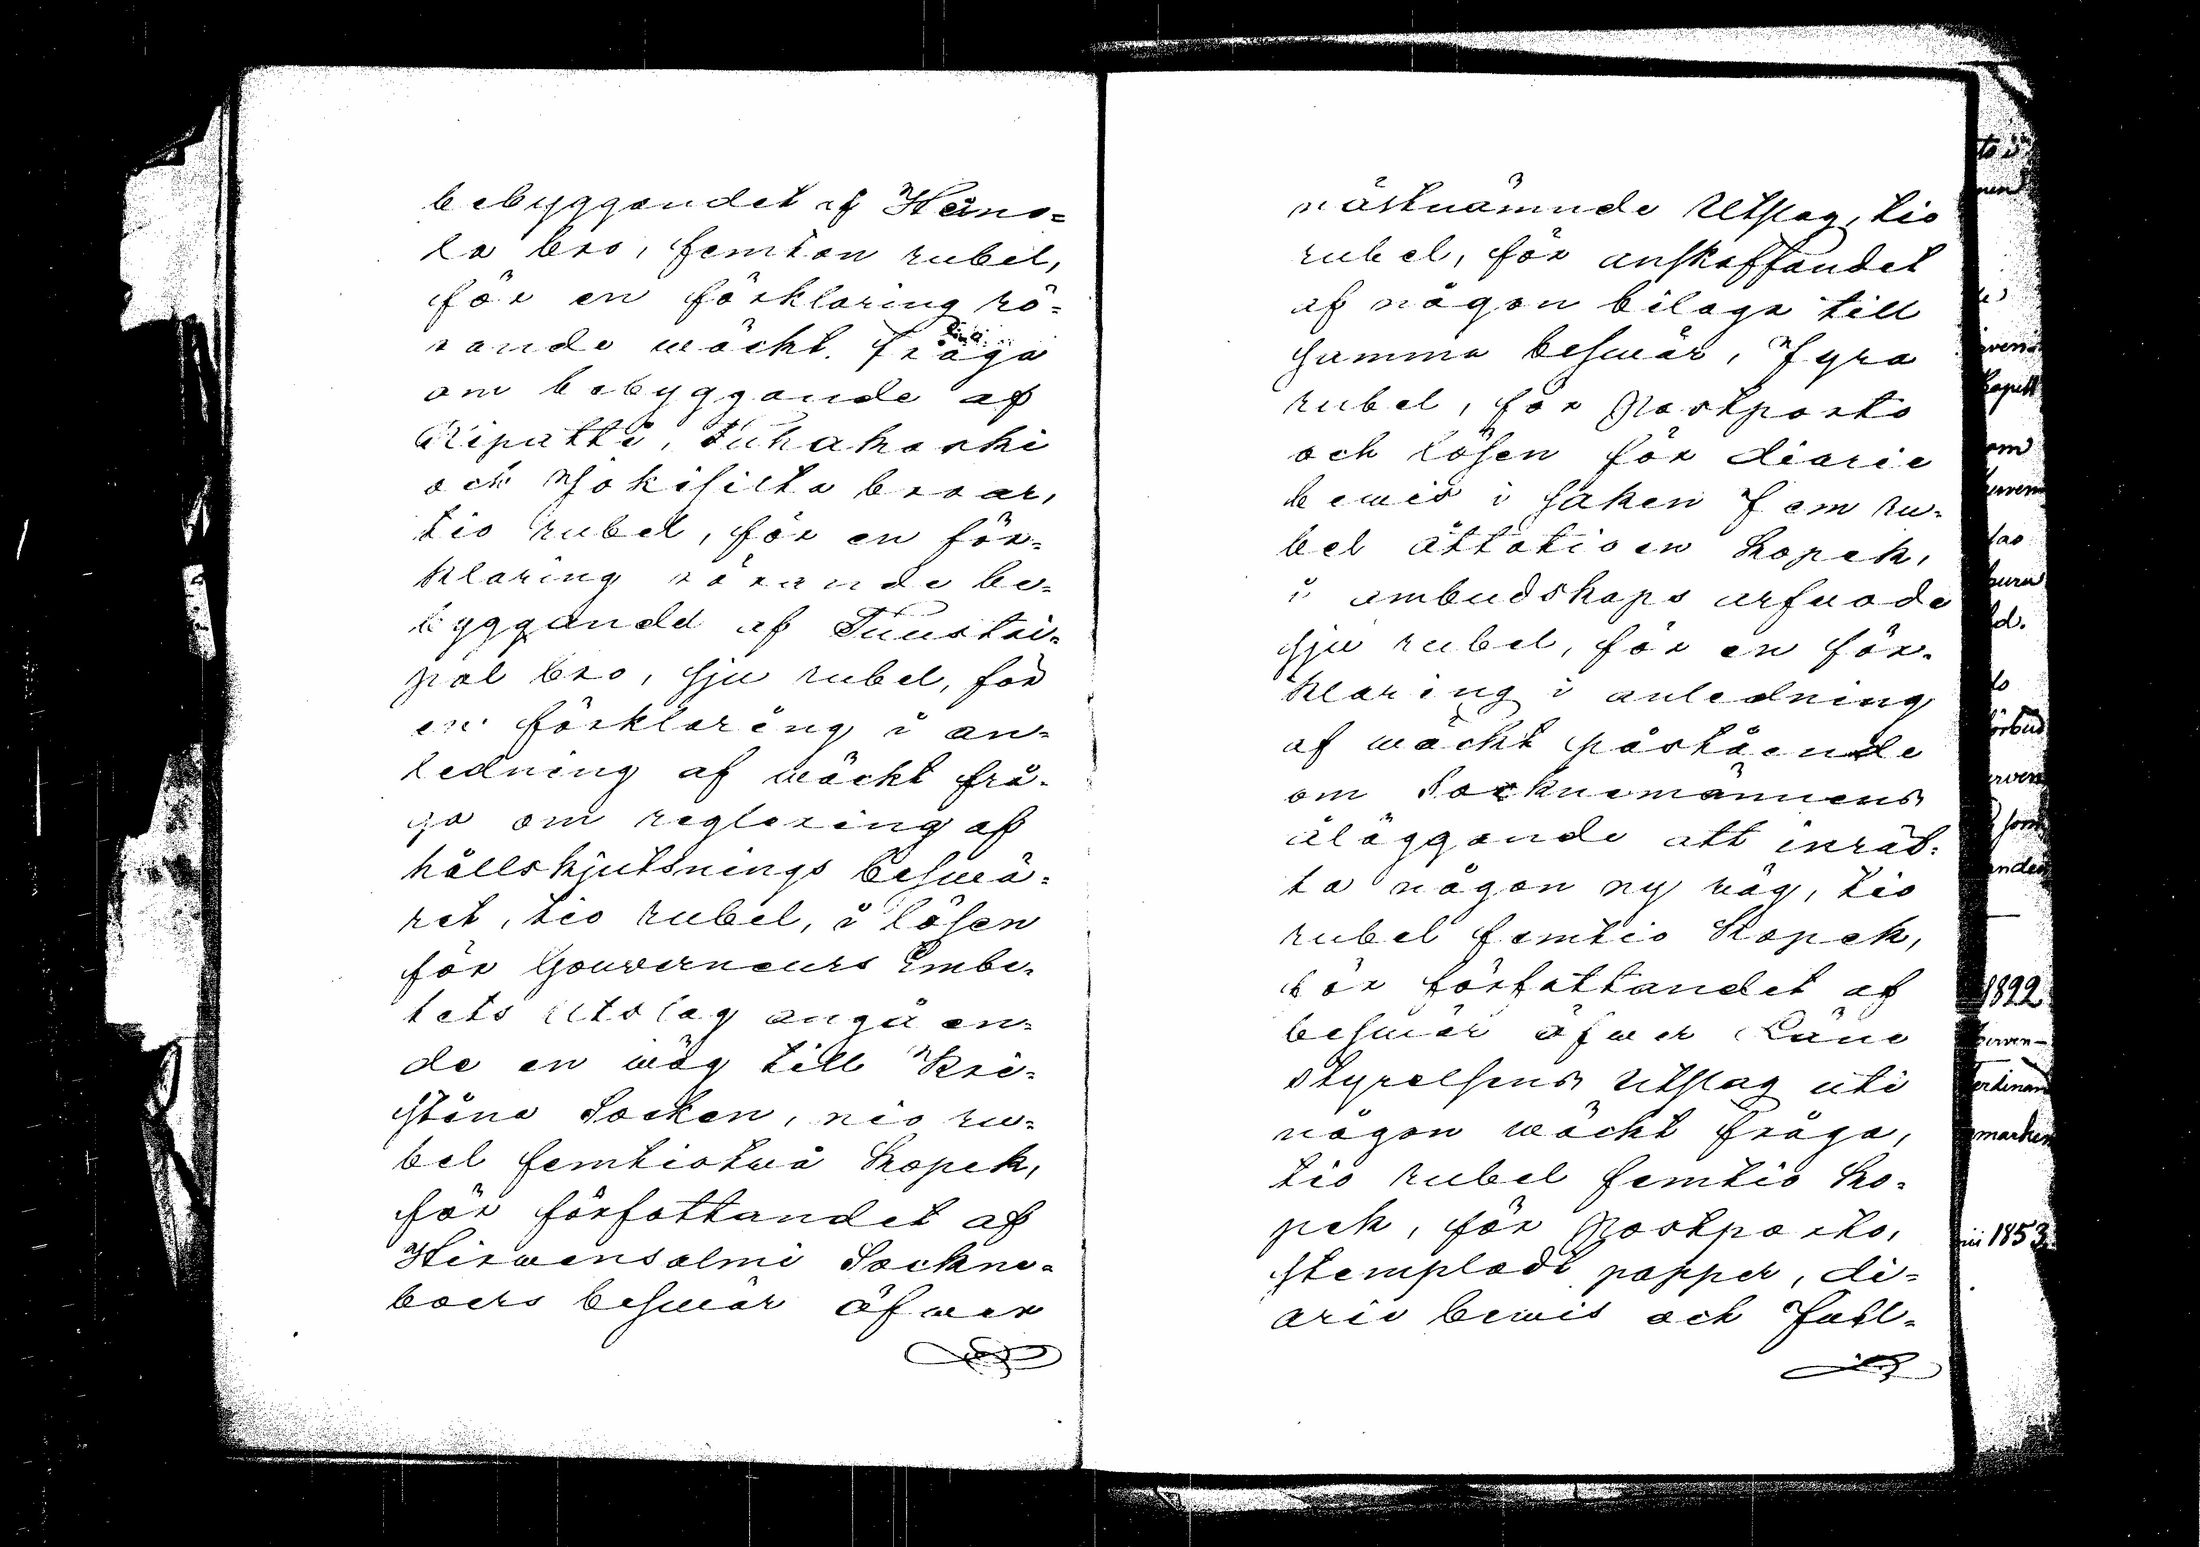 bebyggandet af Heino=
la bro, femton rubel,
för en förklaring rö=
rande wäckt fråga
om bebyggande af
Ripatti, Tuhakoski
och Jokisilta broar,
tio rubel, för en för=
klaring rörande be=
byggandet af Tuustai=
pal bro, sju rubel, för
en förklaring i an=
ledning af wäckt frå=
ga om reglering af
hållskjutsnings beswä=
ret, tio rubel, i lösen
för Gouverneurs Embe=
tets Utslag angåen=
de en wäg till Kri=
stina Socken, nio ru=
bel femtiotwå kopek,
för författandet af
Hirwensalmi Sockne=
boers beswär öfwer
nästnämnde Utslag, tio
rubel, för anskaffandet
af någon bilaga till
samma beswär, fyra
rubel, för Postporto
och lösen för diarie
bewis i saken fem ru=
bel åttatioen kopek,
i ombudskaps arfvode
sju rubel, för en för=
klaring i anledning
af wäckt påstående
om Socknemännens
åläggande att inrät=
ta någon ny wäg, tio
rubel femtio kopek,
för författandet af
beswär öfwer Läne
styrelsens Utslag uti
någon wäckt fråga,
tio rubel femtio ko=
pek, för Postporto,
stempladt papper, di=
arie bewis och Full=
1822
1853